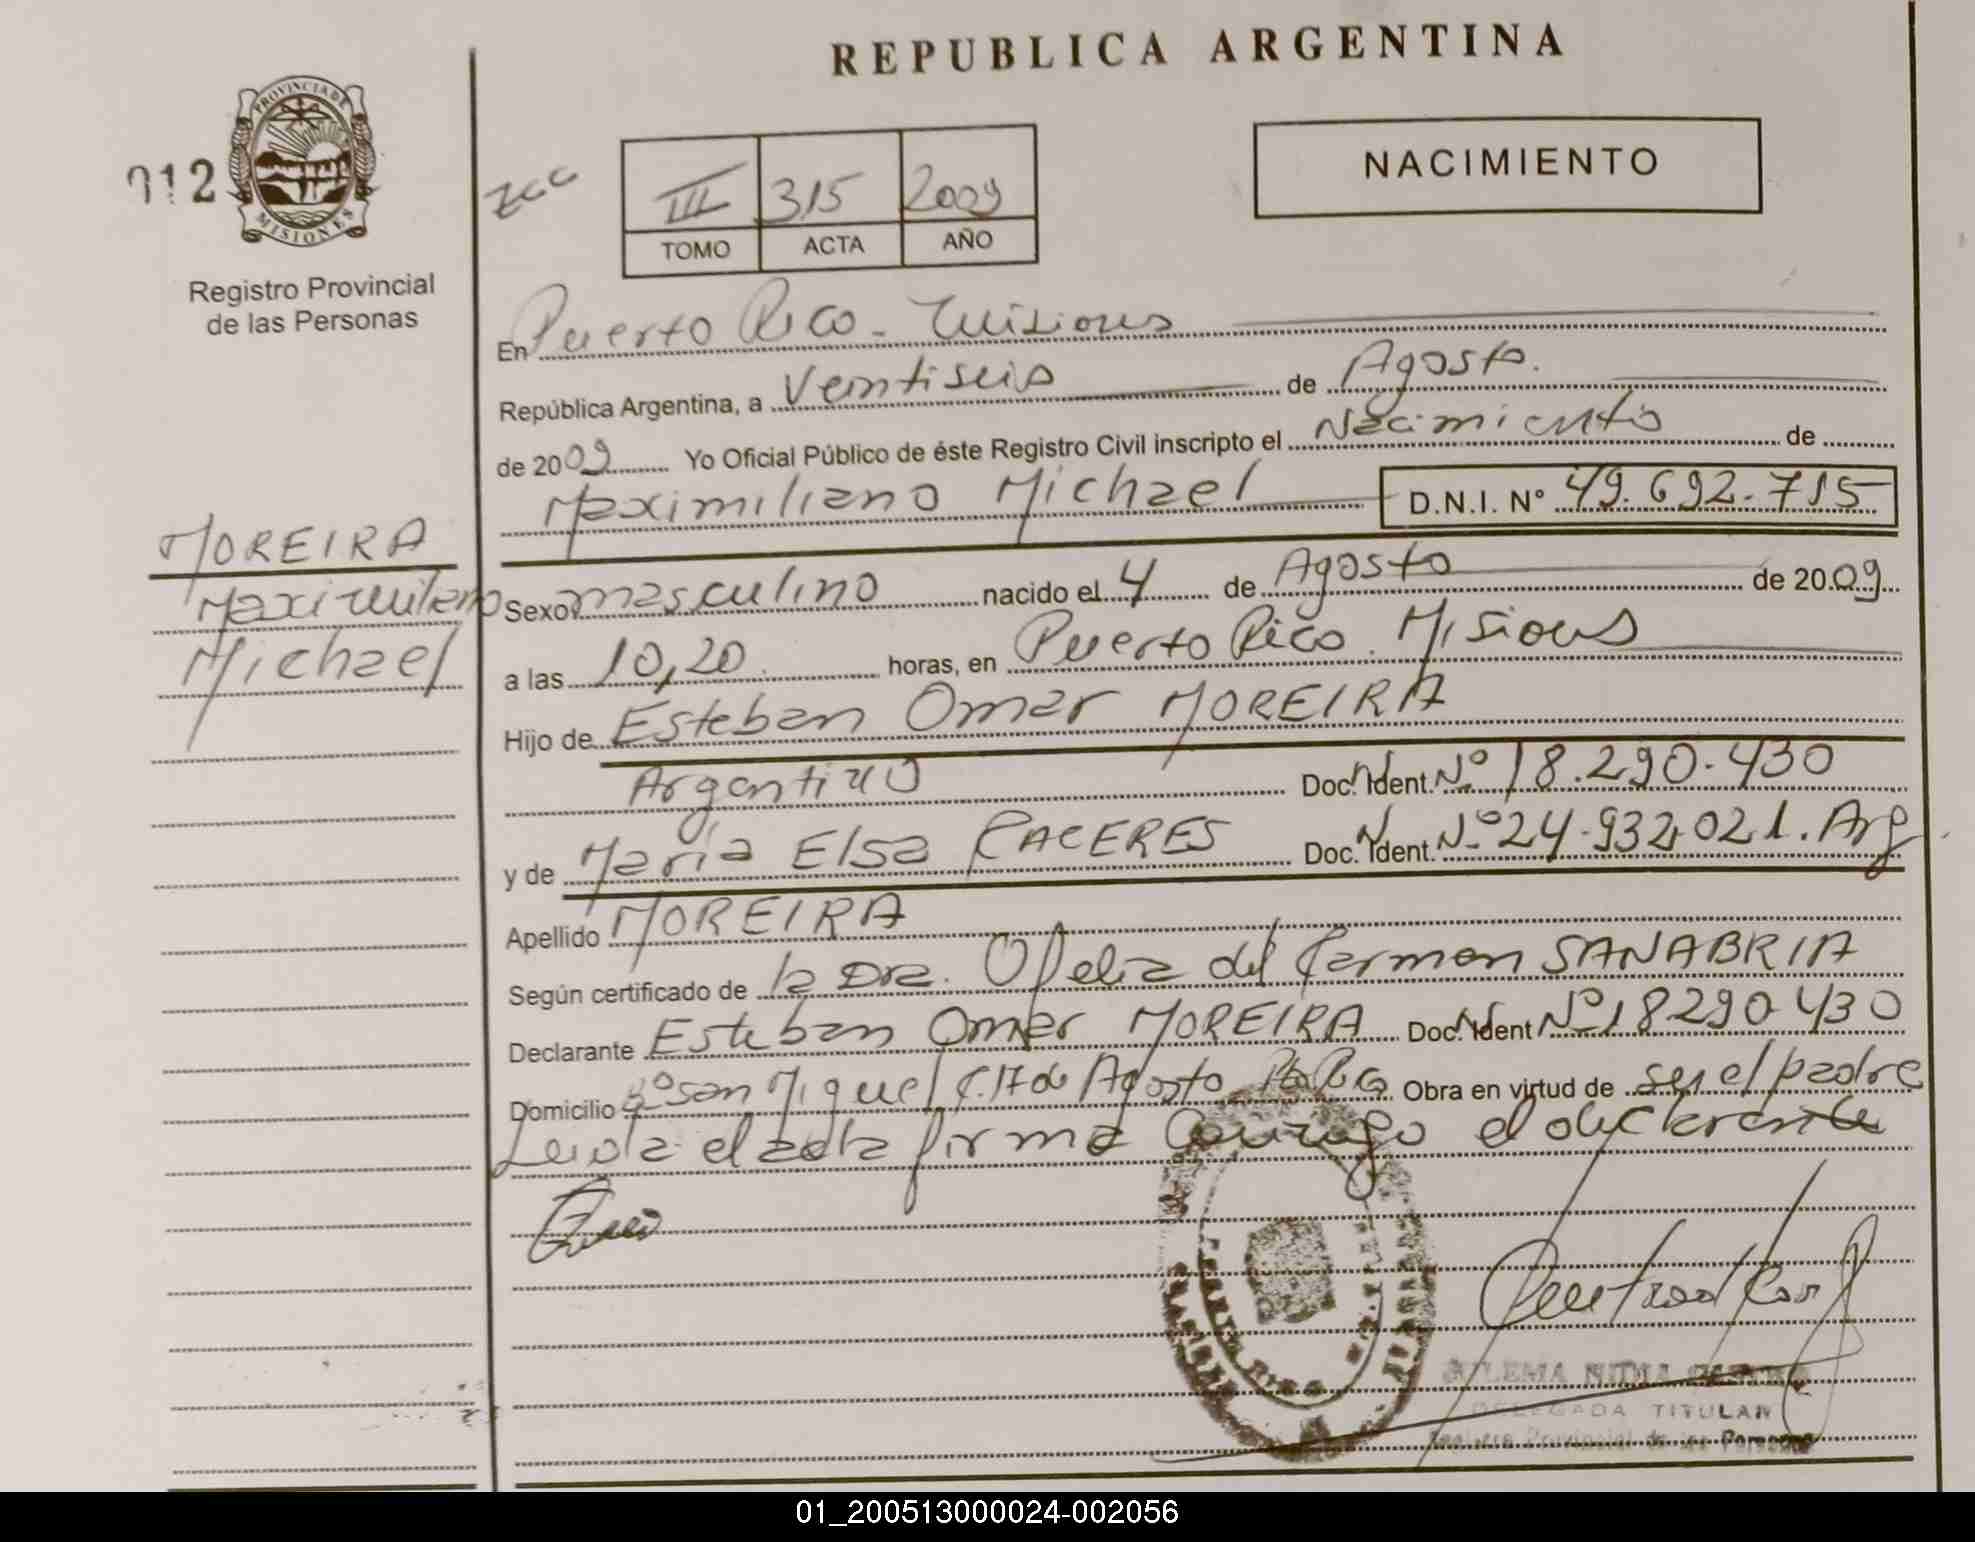 REPUBLICA ARGENTINA
PROVINCIA DE
MISIONES
012
NACIMIENTO
III 315 2009
TOMO ACTA AÑO
Registro Provincial
de las Personas
En Puerto Rico - Misiones
República Argentina, a Veintiseis de Agosto.
de 2009 Yo Oficial Público de éste Registro Civil inscripto el Nacimiento de
Maximiliano Michael D.N.I. Nº 49.692.715
MOREIRA
Maximiliano
Michael
Sexo masculino nacido el 4 de Agosto de 2009
a las 10,20 horas, en Puerto Rico. Misiones
Hijo de Esteban Omar MOREIRA
Argentino Doc. Ident. Nº 18.290.430
y de Maria Elsa CACERES Doc. Ident. Nº 24.932.021. Arg
Apellido MOREIRA
Según certificado de la Dra. Ofelia del Carmen SANABRIA
Declarante Esteban Omar MOREIRA Doc. Ident Nº 18290430
Domicilio Bº San Miguel C. 17 de Agosto Pto Rico Obra en virtud de ser el padre
Leida el acta firma conmigo el declarante
PUERTO RICO
NIDIA
DELEGADA TITULAR
Registro Provincial de las Personas
01_200513000024-002056